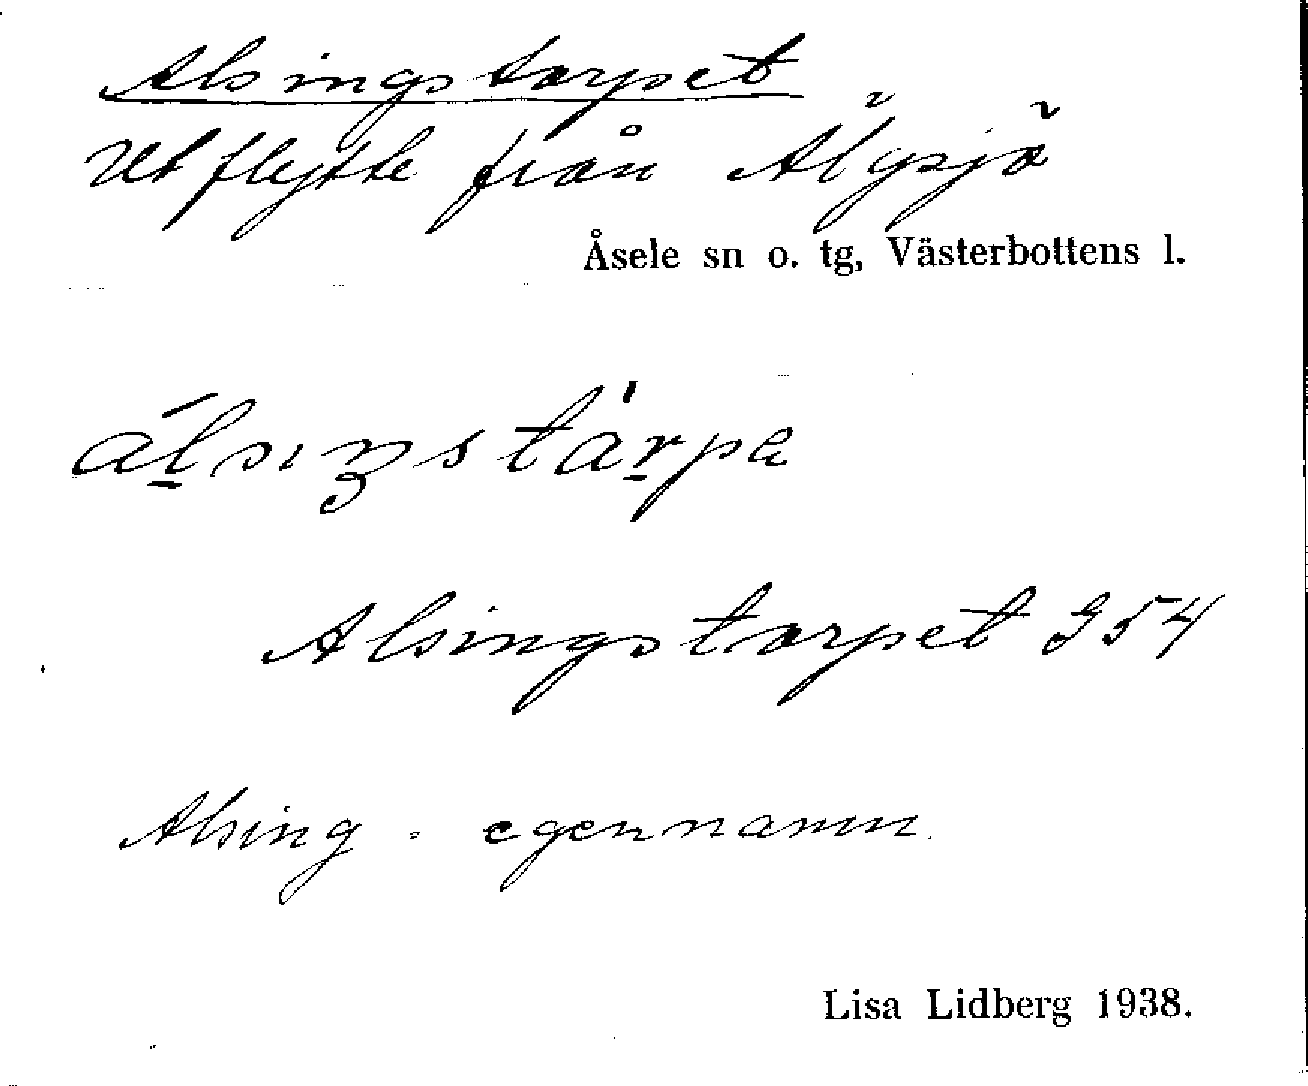 Alsingstorpet
Utflytte från Älgsjö
Åsele sn o. tg, Västerbottens l.
álsıŋstárpa
Alsingstorpet 354
Alsing = egennamn.
Lisa Lidberg 1938.